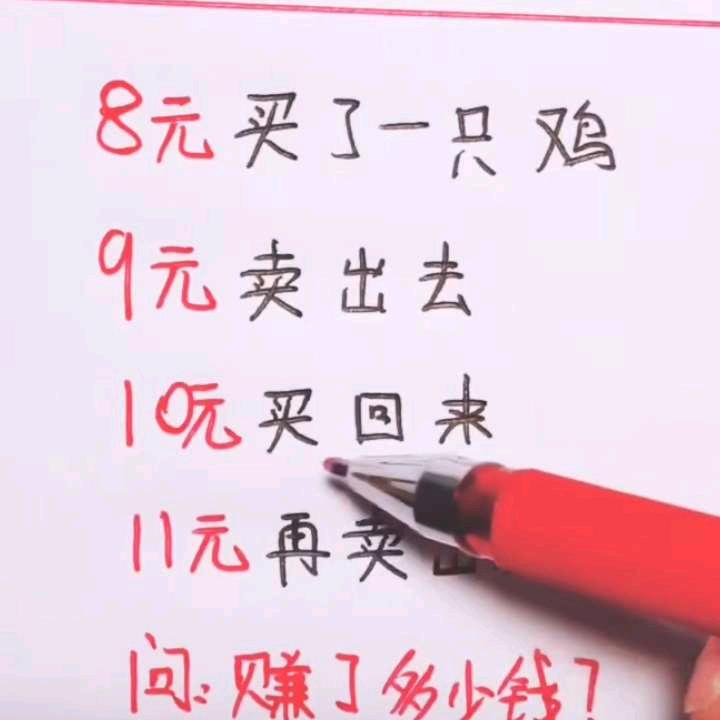 8元买了一只鸡
9元卖出去
10元买回来
11元再卖出
问:赚了多少钱?